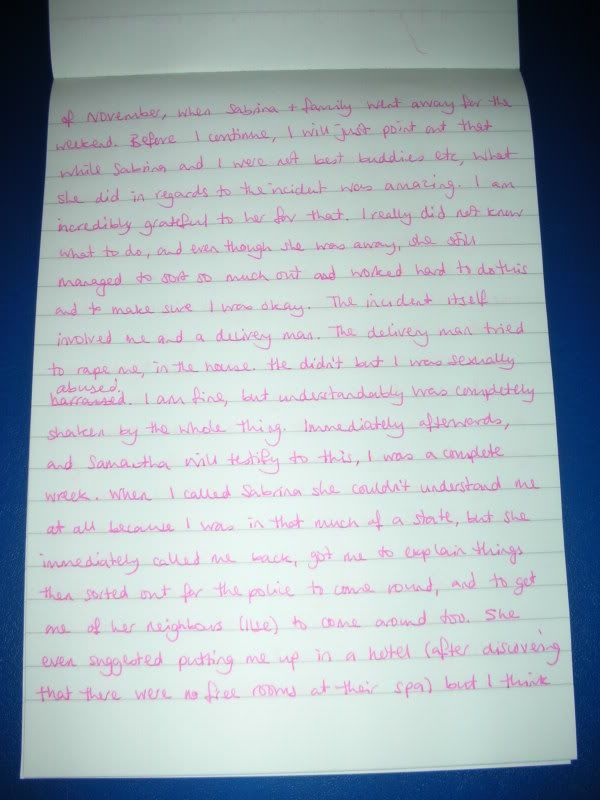 of November, when Sabrina + family went away for the
weekend. Before I continue, I will just point out that
while Sabrina and I were not best buddies etc, what
she did in regards to the incident was amazing. I am
incredibly grateful to her for that. I really did not know
what to do, and even though she was away, she still
managed to sort so much out and worked hard to do this
and to make sure I was okay. The incident itself
involved me and a delivery man. The delivery man tried
to rape me, in the house. He didn't but I was sexually
abused,
harrassed. I am fine, but understandably was completely
shaken by the whole thing. Immediately afterwards,
and Samantha will testify to this, I was a complete
wreck. When I called Sabrina she couldn't understand me
at all because I was in that much of a state, but she
immediately called me back, got me to explain things
then sorted out for the police to come round, and to get
one of her neighbours (Ilse) to come around too. She
even suggested putting me up in a hotel (after discovering
that there were no free rooms at their spa) but I think